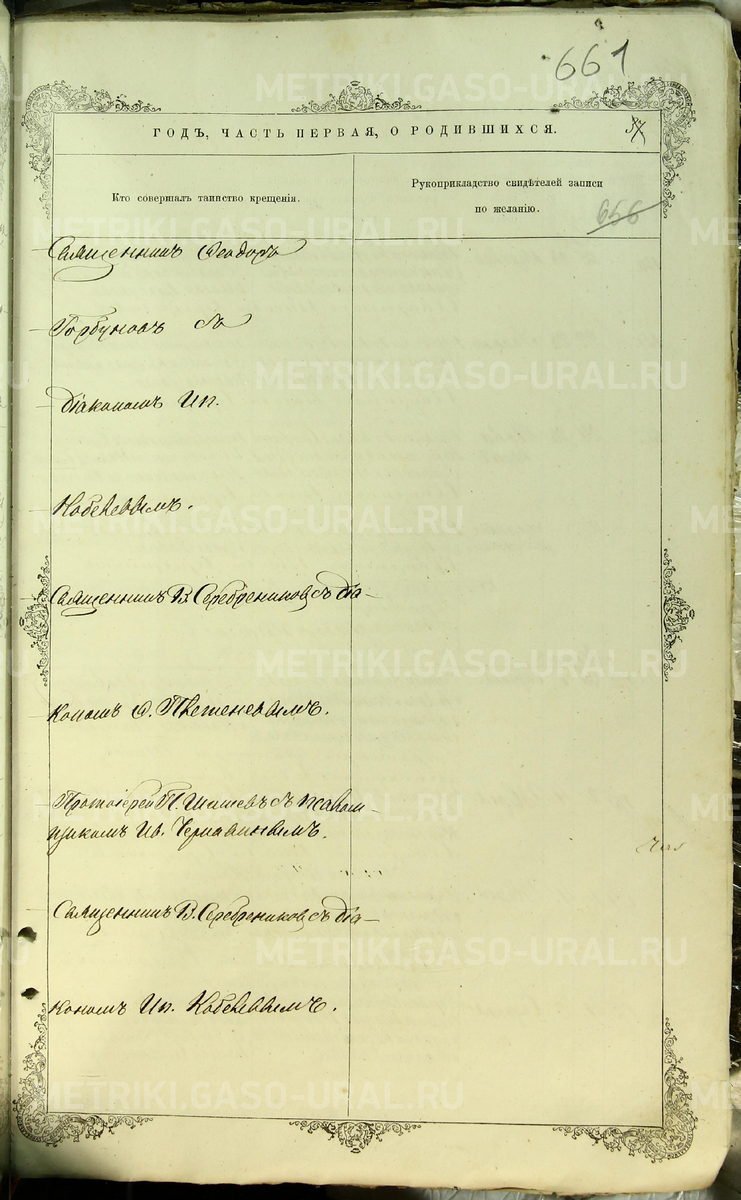 661
ГОДЪ, ЧАСТЬ ПЕРВАЯ, О РОДИВШИХСЯ.
Кто совершалъ таинство крещенія.
Рукоприкладство свидѣтелей записи
по желанію.
656
Священникъ Ѳеодоръ
Горбуновъ съ
діакономъ Ип.
Священникъ В. Серебрениковъ съ діа-
кономъ
Протоіерей П. съ псалом-
щикомъ Ив. Чернавинымъ.
Священникъ В. Серебрениковъ съ діа-
кономъ Ип.
METRIKI.GASO-URAL.RU